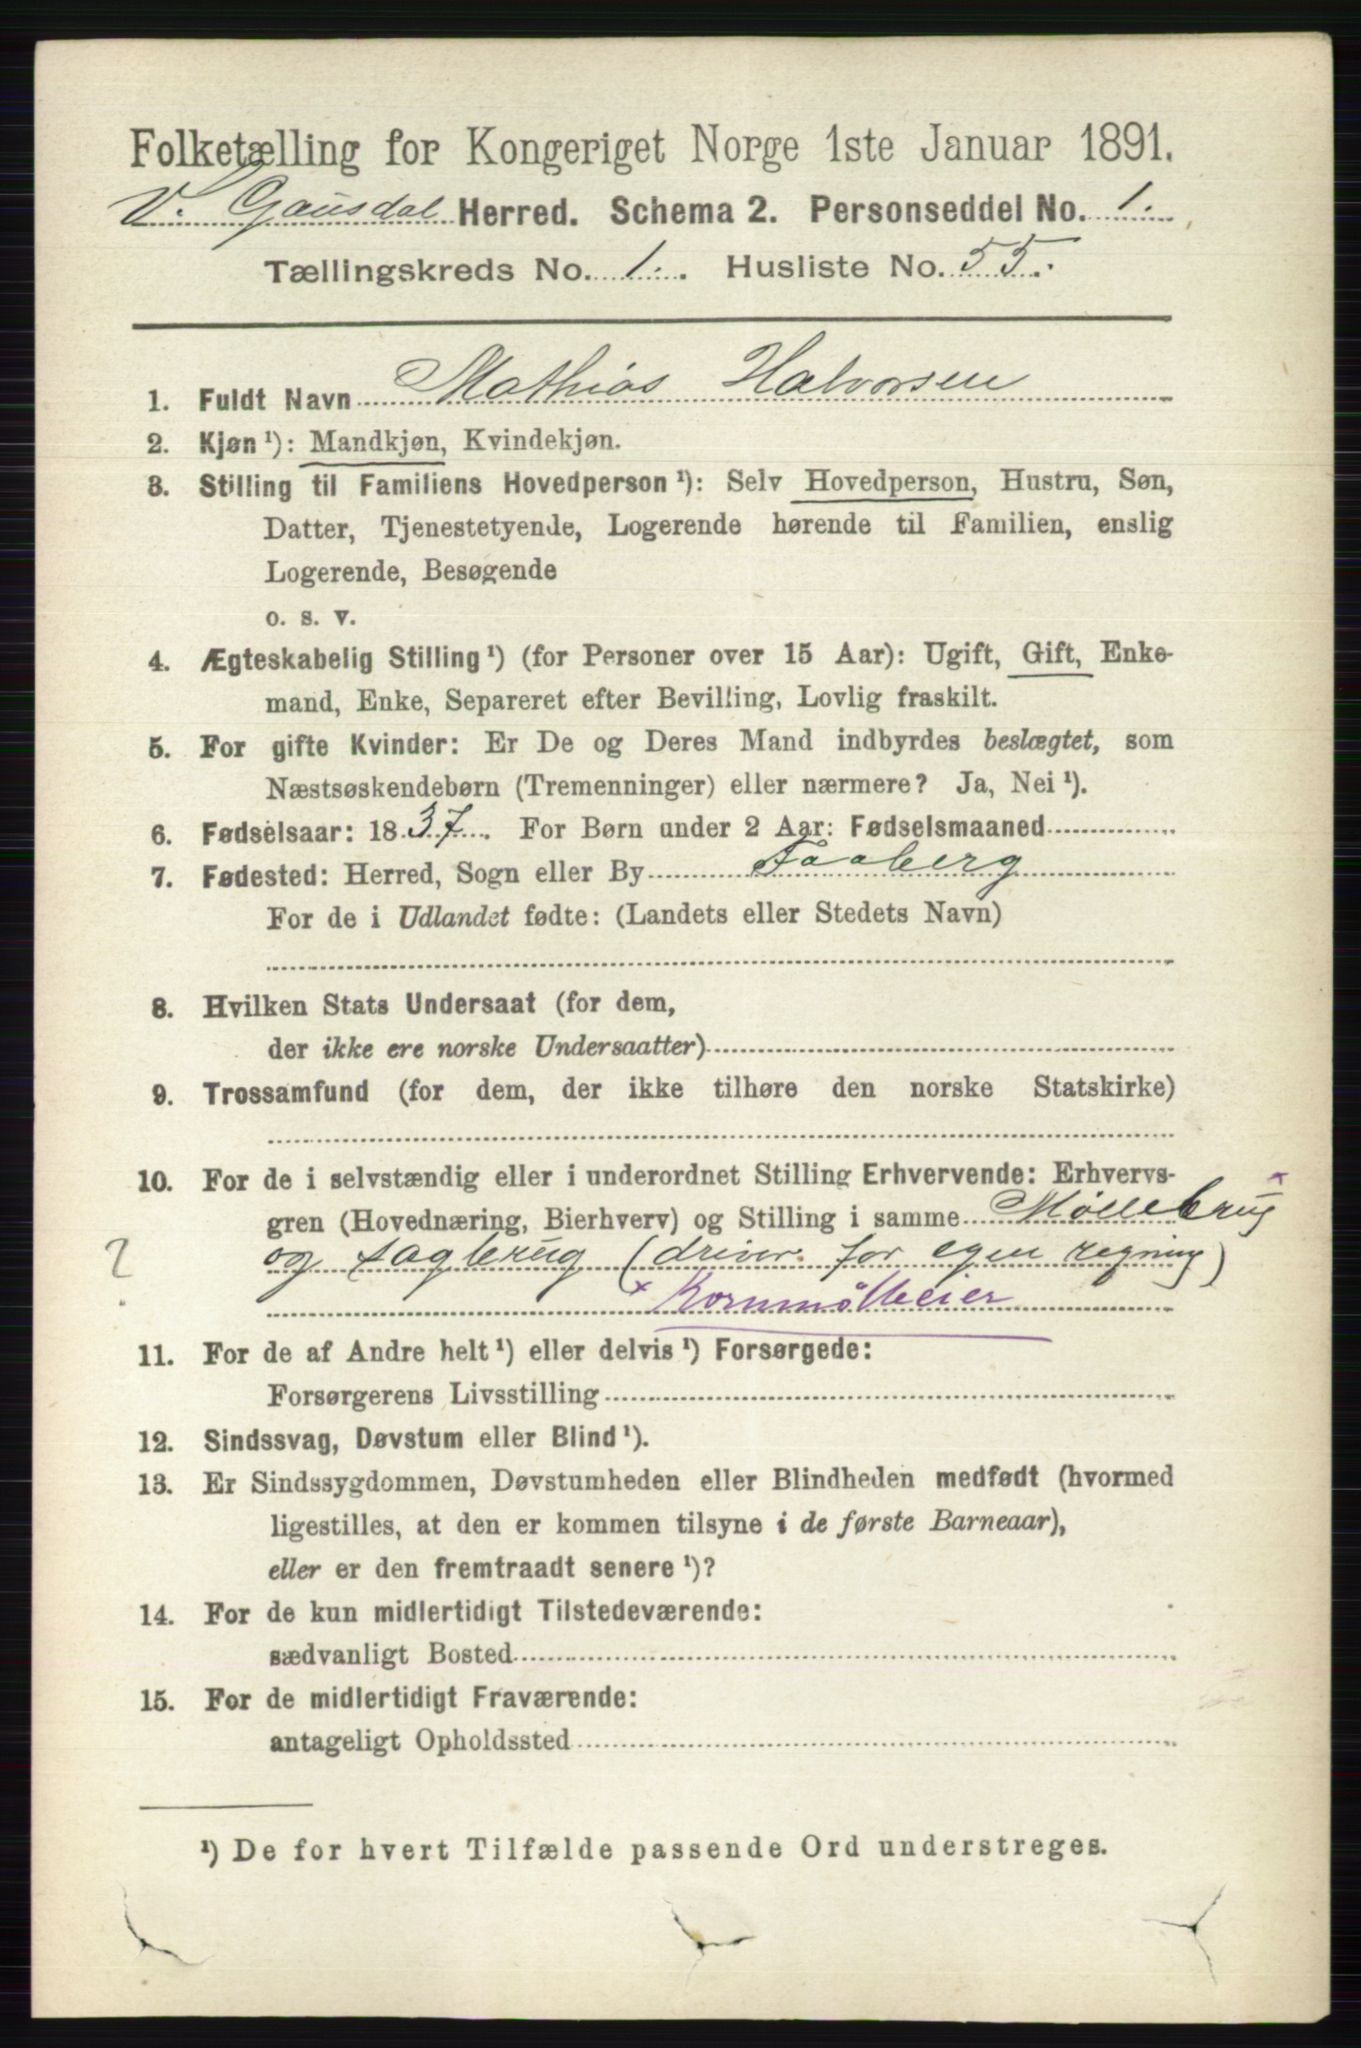 Folketælling for Kongeriget Norge 1ste Januar 1891.
V. Gausdal Herred. Schema 2. Personseddel No. 1.
Tællingskreds No. 1. Husliste No. 55.
1. Fuldt Navn Mathias Halvorsen
2. Kjøn ¹): Mandkjøn, Kvindekjøn.
3. Stilling til Familiens Hovedperson ¹): Selv Hovedperson, Hustru, Søn,
Datter, Tjenestetyende, Logerende hørende til Familien, enslig
Logerende, Besøgende
o. s. v.
4. Ægteskabelig Stilling ¹) (for Personer over 15 Aar): Ugift, Gift, Enke-
mand, Enke, Separeret efter Bevilling, Lovlig fraskilt.
5. For gifte Kvinder: Er De og Deres Mand indbyrdes beslægtet, som
Næstsøskendebørn (Tremenninger) eller nærmere? Ja, Nei ¹).
6. Fødselsaar: 1837. For Børn under 2 Aar: Fødselsmaaned
7. Fødested: Herred, Sogn eller By Faaberg
For de i Udlandet fødte: (Landets eller Stedets Navn)
8. Hvilken Stats Undersaat (for dem,
der ikke ere norske Undersaatter)
9. Trossamfund (for dem, der ikke tilhøre den norske Statskirke)
10. For de i selvstændig eller i underordnet Stilling Erhvervende: Erhvervs-
gren (Hovednæring, Bierhverv) og Stilling i samme Møllebrug ×
? og sagbrug (driver for egen regning)
× Kornmølleier
11. For de af Andre helt ¹) eller delvis ¹) Forsørgede:
Forsørgerens Livsstilling
12. Sindssvag, Døvstum eller Blind ¹).
13. Er Sindssygdommen, Døvstumheden eller Blindheden medfødt (hvormed
ligestilles, at den er kommen tilsyne i de første Barneaar),
eller er den fremtraadt senere ¹)?
14. For de kun midlertidigt Tilstedeværende:
sædvanligt Bosted
15. For de midlertidigt Fraværende:
antageligt Opholdssted
¹) De for hvert Tilfælde passende Ord understreges.